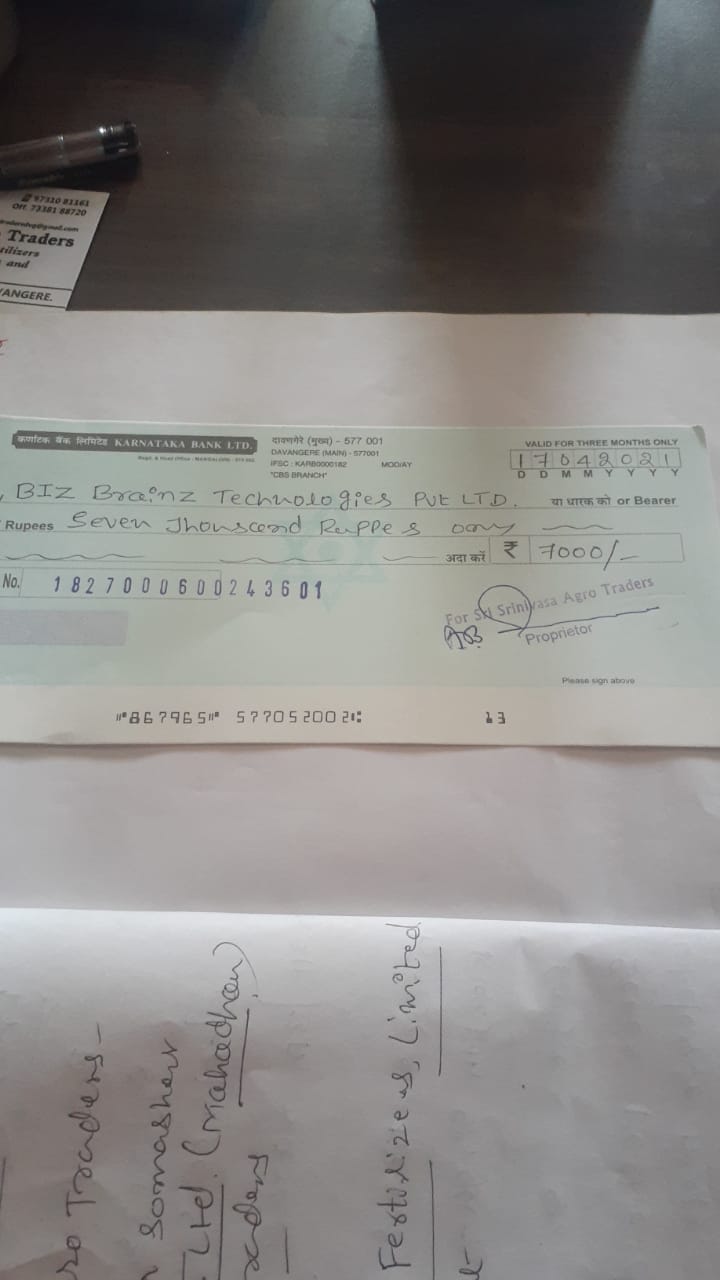 97310 81161
Off. 73381 88720
tradersdvg@gmail.com
Traders
tilizers
and
VANGERE.
कर्णाटक बैंक लिमिटेड KARNATAKA BANK LTD.
दावणगेरे (मुख्य) - 577 001
DAVANGERE (MAIN) - 577001
IFSC : KARB0000182 MOD/AY
"CBS BRANCH"
VALID FOR THREE MONTHS ONLY
17042021
D D M M Y Y Y Y
BIZ Brainz Technologies Pvt LTD. या धारक को or Bearer
Rupees Seven Thouscend Ruppes oony
अदा करें ₹ 7000/-
No. 1827000600243601
For Sri Srinivasa Agro Traders
Proprietor
Please sign above
⑈867965⑈ 577052002⑆ 13
ro Traders -
Somasher
Ltd. (Mahadhan)
aders
Fertilizers, Limited